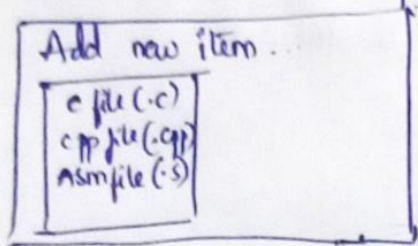 Add new item...
c file (.c)
cpp file (.cpp)
Asm file (.s)